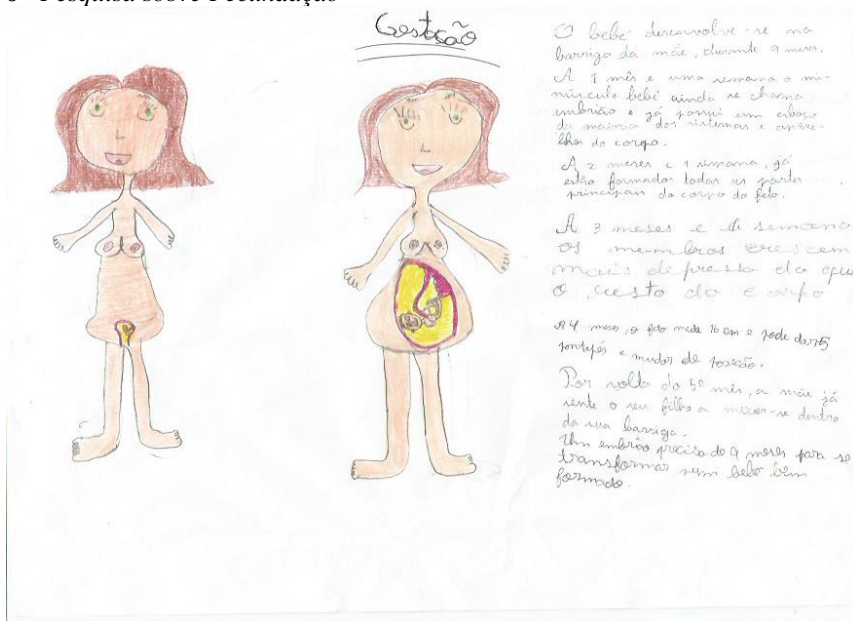 Gestação
O bebé desenvolve-se na
barriga da mãe, durante 9 meses.
A 1 mês e uma semana o mi-
núsculo bebé ainda se chama
embrião e já possui um esboço
da maioria dos sistemas e apare-
lhos do corpo.
A 2 meses e 1 semana, já
estão formados todas as partes
principais do corpo do feto.
A 3 meses e semana
os membros crescem
mais depressa do que
o resto do corpo
A 4 meses, o feto mede 16 cm e pode dar
pontapés e mudar de posição.
Por volta do 5º mês, a mãe já
sente o seu filho a mexer-se dentro
da sua barriga.
Um embrião precisa de 9 meses para se
transformar num bebé bem
formado.